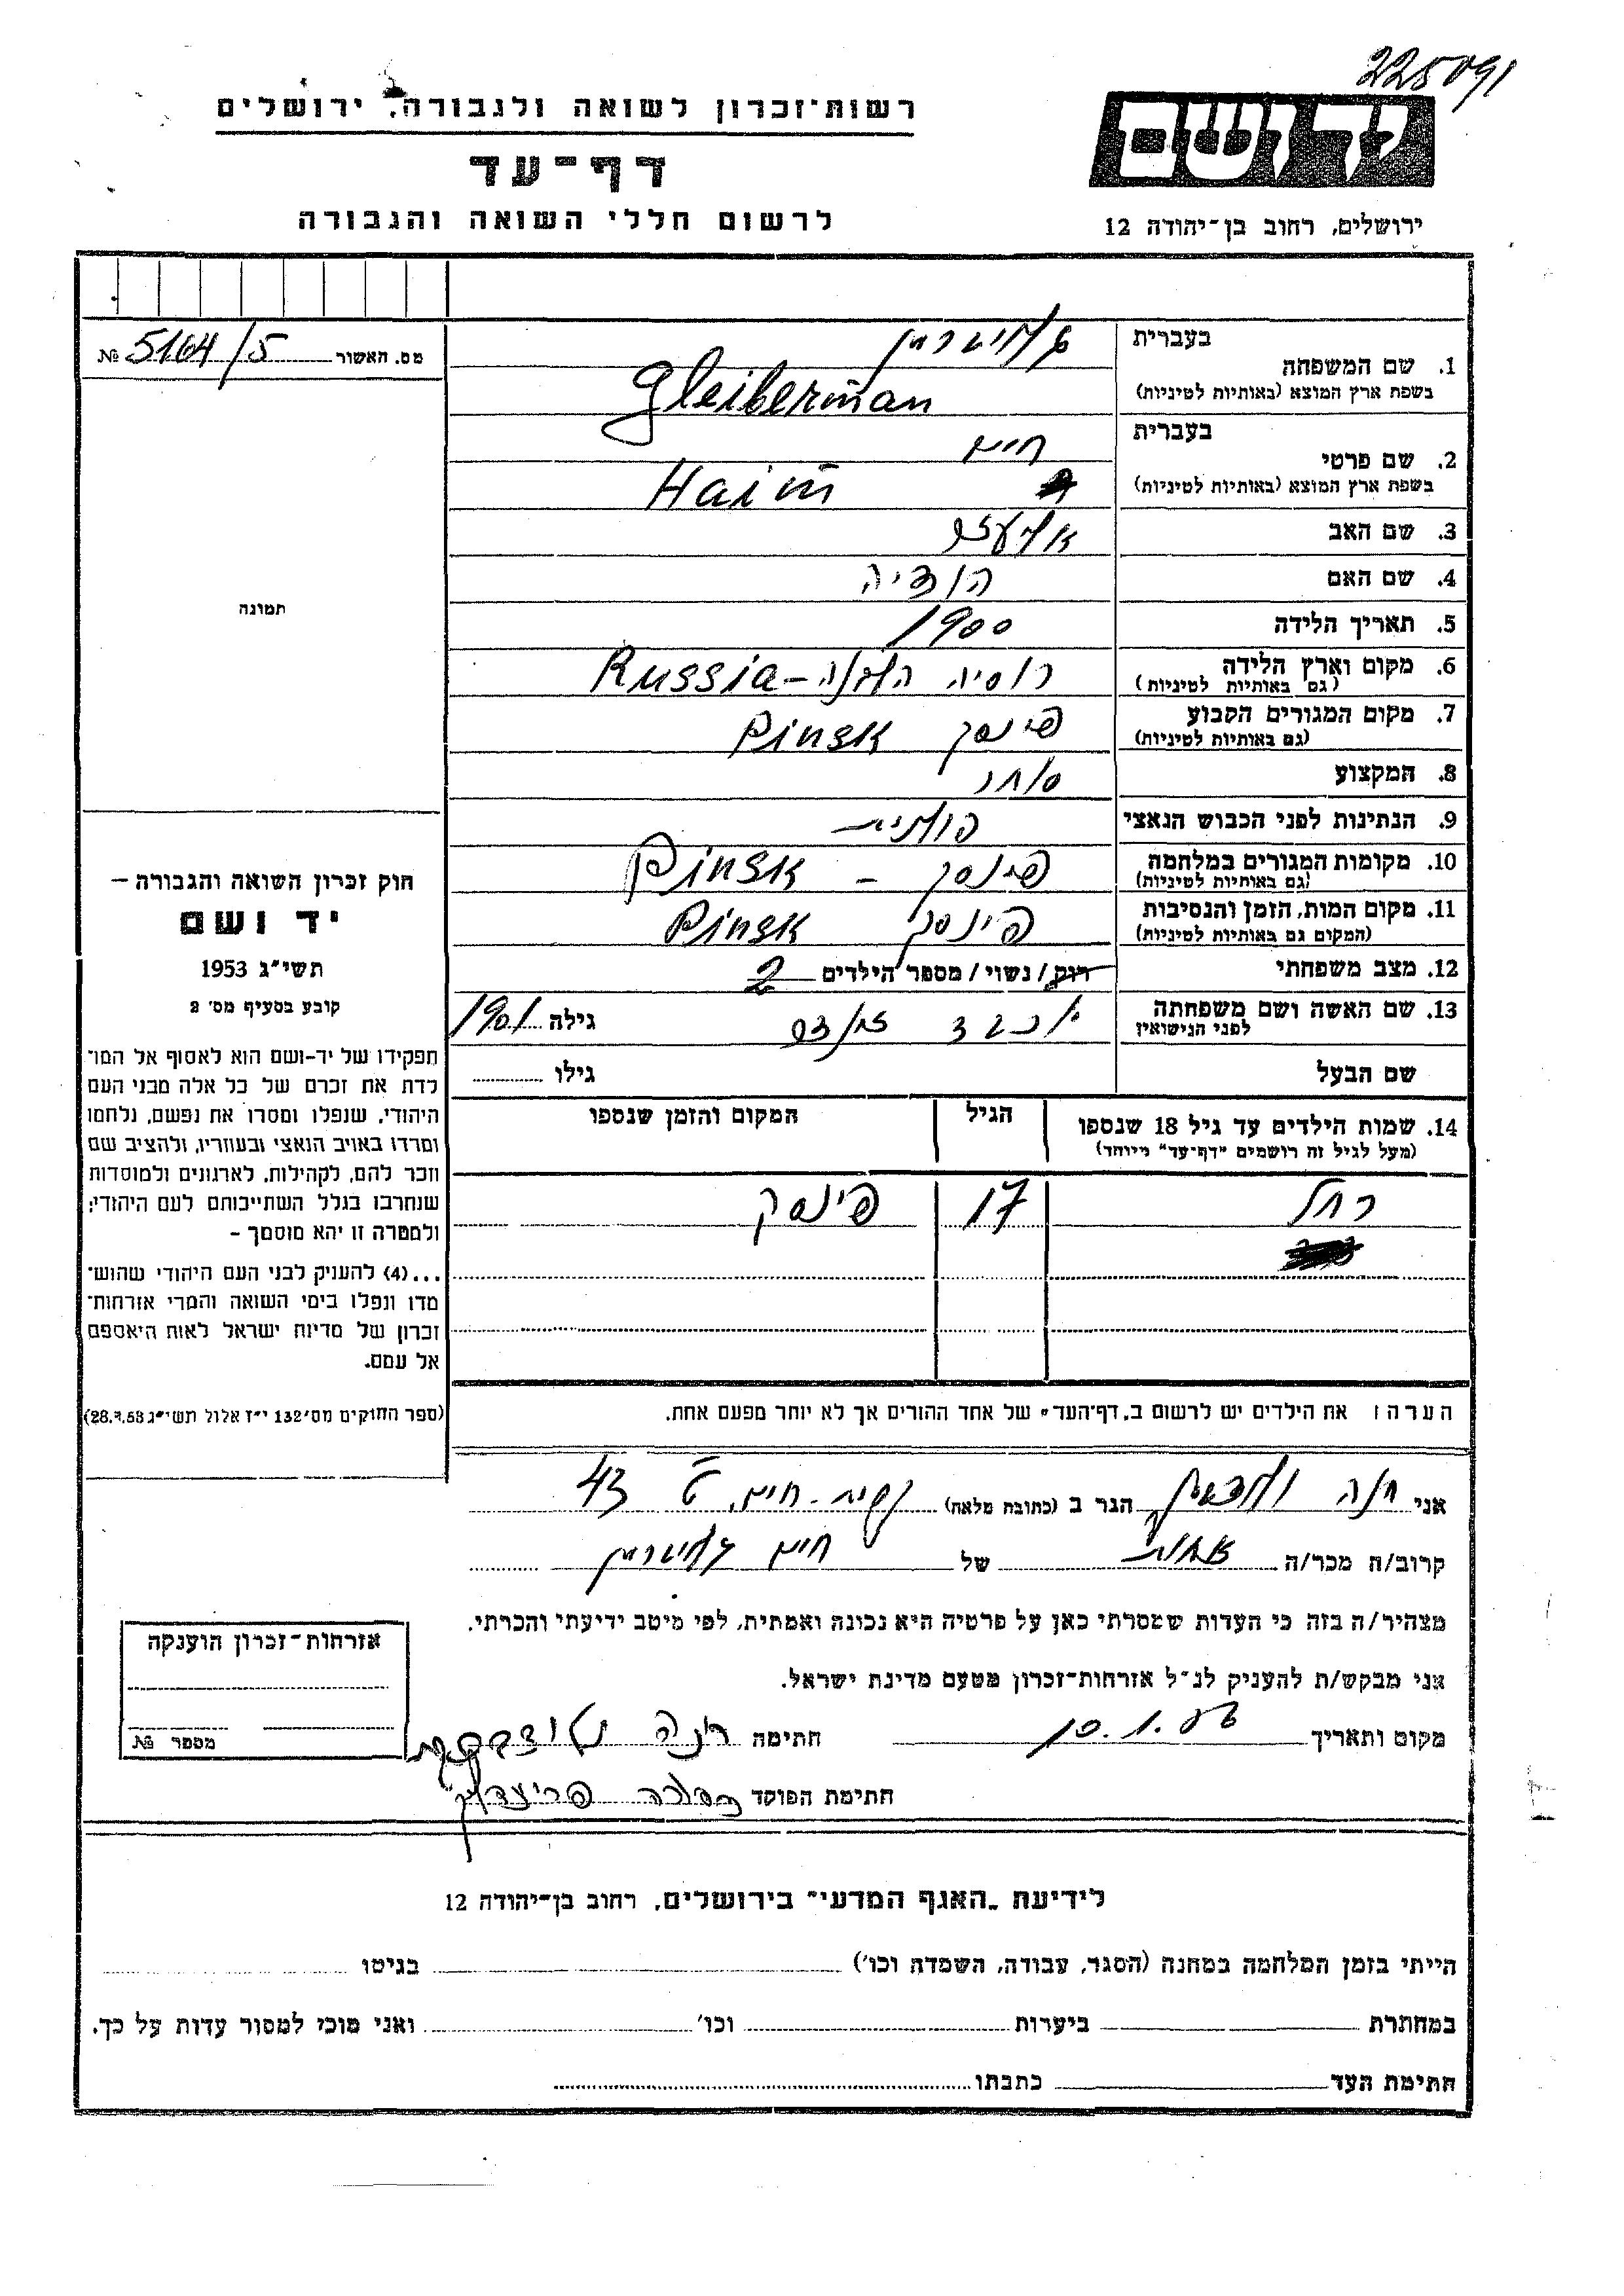 225091
רשות־זכרון לשואה ולגבורה, ירושלים
יד ושם
דף־עד
לרשום חללי השואה והגבורה
ירושלים, רחוב בן־יהודה 12
מס. האשור 5164/5 №
1. שם המשפחה
בעברית גלייברמן
בשפת ארץ המוצא (באותיות לטיניות) Gleiberman
2. שם פרטי
בעברית חיים
בשפת ארץ המוצא (באותיות לטיניות) Haim
3. שם האב
4. שם האם הודיה
5. תאריך הלידה 1900
6. מקום וארץ הלידה רוסיה הלבנה – Russia
(גם באותיות לטיניות)
7. מקום המגורים הקבוע פינסק Pinsk
(גם באותיות לטיניות)
8. המקצוע סוחר
9. הנתינות לפני הכבוש הנאצי פולנית
10. מקומות המגורים במלחמה פינסק – Pinsk
(גם באותיות לטיניות)
11. מקום המות, הזמן והנסיבות פינסק Pinsk
(המקום גם באותיות לטיניות)
12. מצב משפחתי רווק / נשוי / מספר הילדים 2
13. שם האשה ושם משפחתה יוכבד גילה 1901
לפני הנישואין
שם הבעל גילו
14. שמות הילדים עד גיל 18 שנספו הגיל המקום והזמן שנספו
(מעל לגיל זה רושמים "דף־עד" מיוחד)
רחל 17 פינסק
הערה: את הילדים יש לרשום ב„דף־העד" של אחד ההורים אך לא יותר מפעם אחת.
תמונה
חוק זכרון השואה והגבורה –
יד ושם
תשי"ג 1953
קובע בסעיף מס' 2
תפקידו של יד-ושם הוא לאסוף אל המו־
לדת את זכרם של כל אלה מבני העם
היהודי, שנפלו ומסרו את נפשם, נלחמו
ומרדו באויב הנאצי ובעוזריו, ולהציב שם
וזכר להם, לקהילות, לארגונים ולמוסדות
שנחרבו בגלל השתייכותם לעם היהודי;
ולמטרה זו יהא מוסמך –
...(4) להעניק לבני העם היהודי שהוש־
מדו ונפלו בימי השואה והמרי אזרחות־
זכרון של מדינת ישראל לאות היאספם
אל עמם.
(ספר החוקים מס' 132 י"ז אלול תשי"ג 28.8.53)
אני חנה הגר ב (כתובת מלאה) קרית-חיים, ט 43
קרוב/ה מכר/ה אחות של חיים גלייברמן
מצהיר/ה בזה כי העדות שמסרתי כאן על פרטיה היא נכונה ואמתית, לפי מיטב ידיעתי והכרתי.
אני מבקש/ת להעניק לנ"ל אזרחות־זכרון מטעם מדינת ישראל.
מקום ותאריך 10.1. חתימה חנה
חתימת הפוקד
אזרחות־זכרון הוענקה
מספר №
לידיעת „האגף המדעי" בירושלים, רחוב בן־יהודה 12
הייתי בזמן המלחמה במחנה (הסגר, עבודה, השמדה וכו') בגיטו
במחתרת ביערות וכו' ואני מוכן למסור עדות על כך.
חתימת העד כתבתו